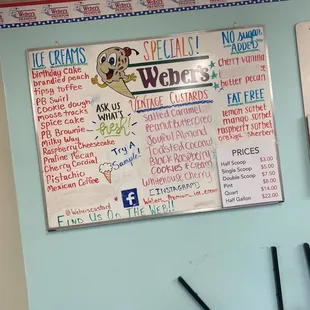 Weber's
ICE CREAMS
birthday cake
brandied peach
tipsy toffee
PB Swirl
cookie dough
moose tracks
spice cake
PB Brownie
Milky Way
Raspberry Cheesecake
Praline Pecan
Cherry Cordial
Pistachio
Mexican Coffee
@Weberscustard
FIND US ON THE WEB!!
SPECIALS!
Weber's
ASK US
WHAT'S
fresh
TRY A
Sample!
VINTAGE CUSTARDS
Salted Caramel
Peanut Butter Oreo
Joyful Almond
Toasted Coconut
Black Raspberry
Cookies & Cream
Umehouse Cherry
INSTAGRAM
NO Sugar
ADDED
cherry vanilla
butter pecan
FAT FREE
lemon sorbet
mango sorbet
raspberry sorbet
orange sherbet
PRICES
Half Scoop $3.00
Single Scoop $5.00
Double Scoop $7.50
Pint $8.00
Quart $14.00
Half Gallon $22.00